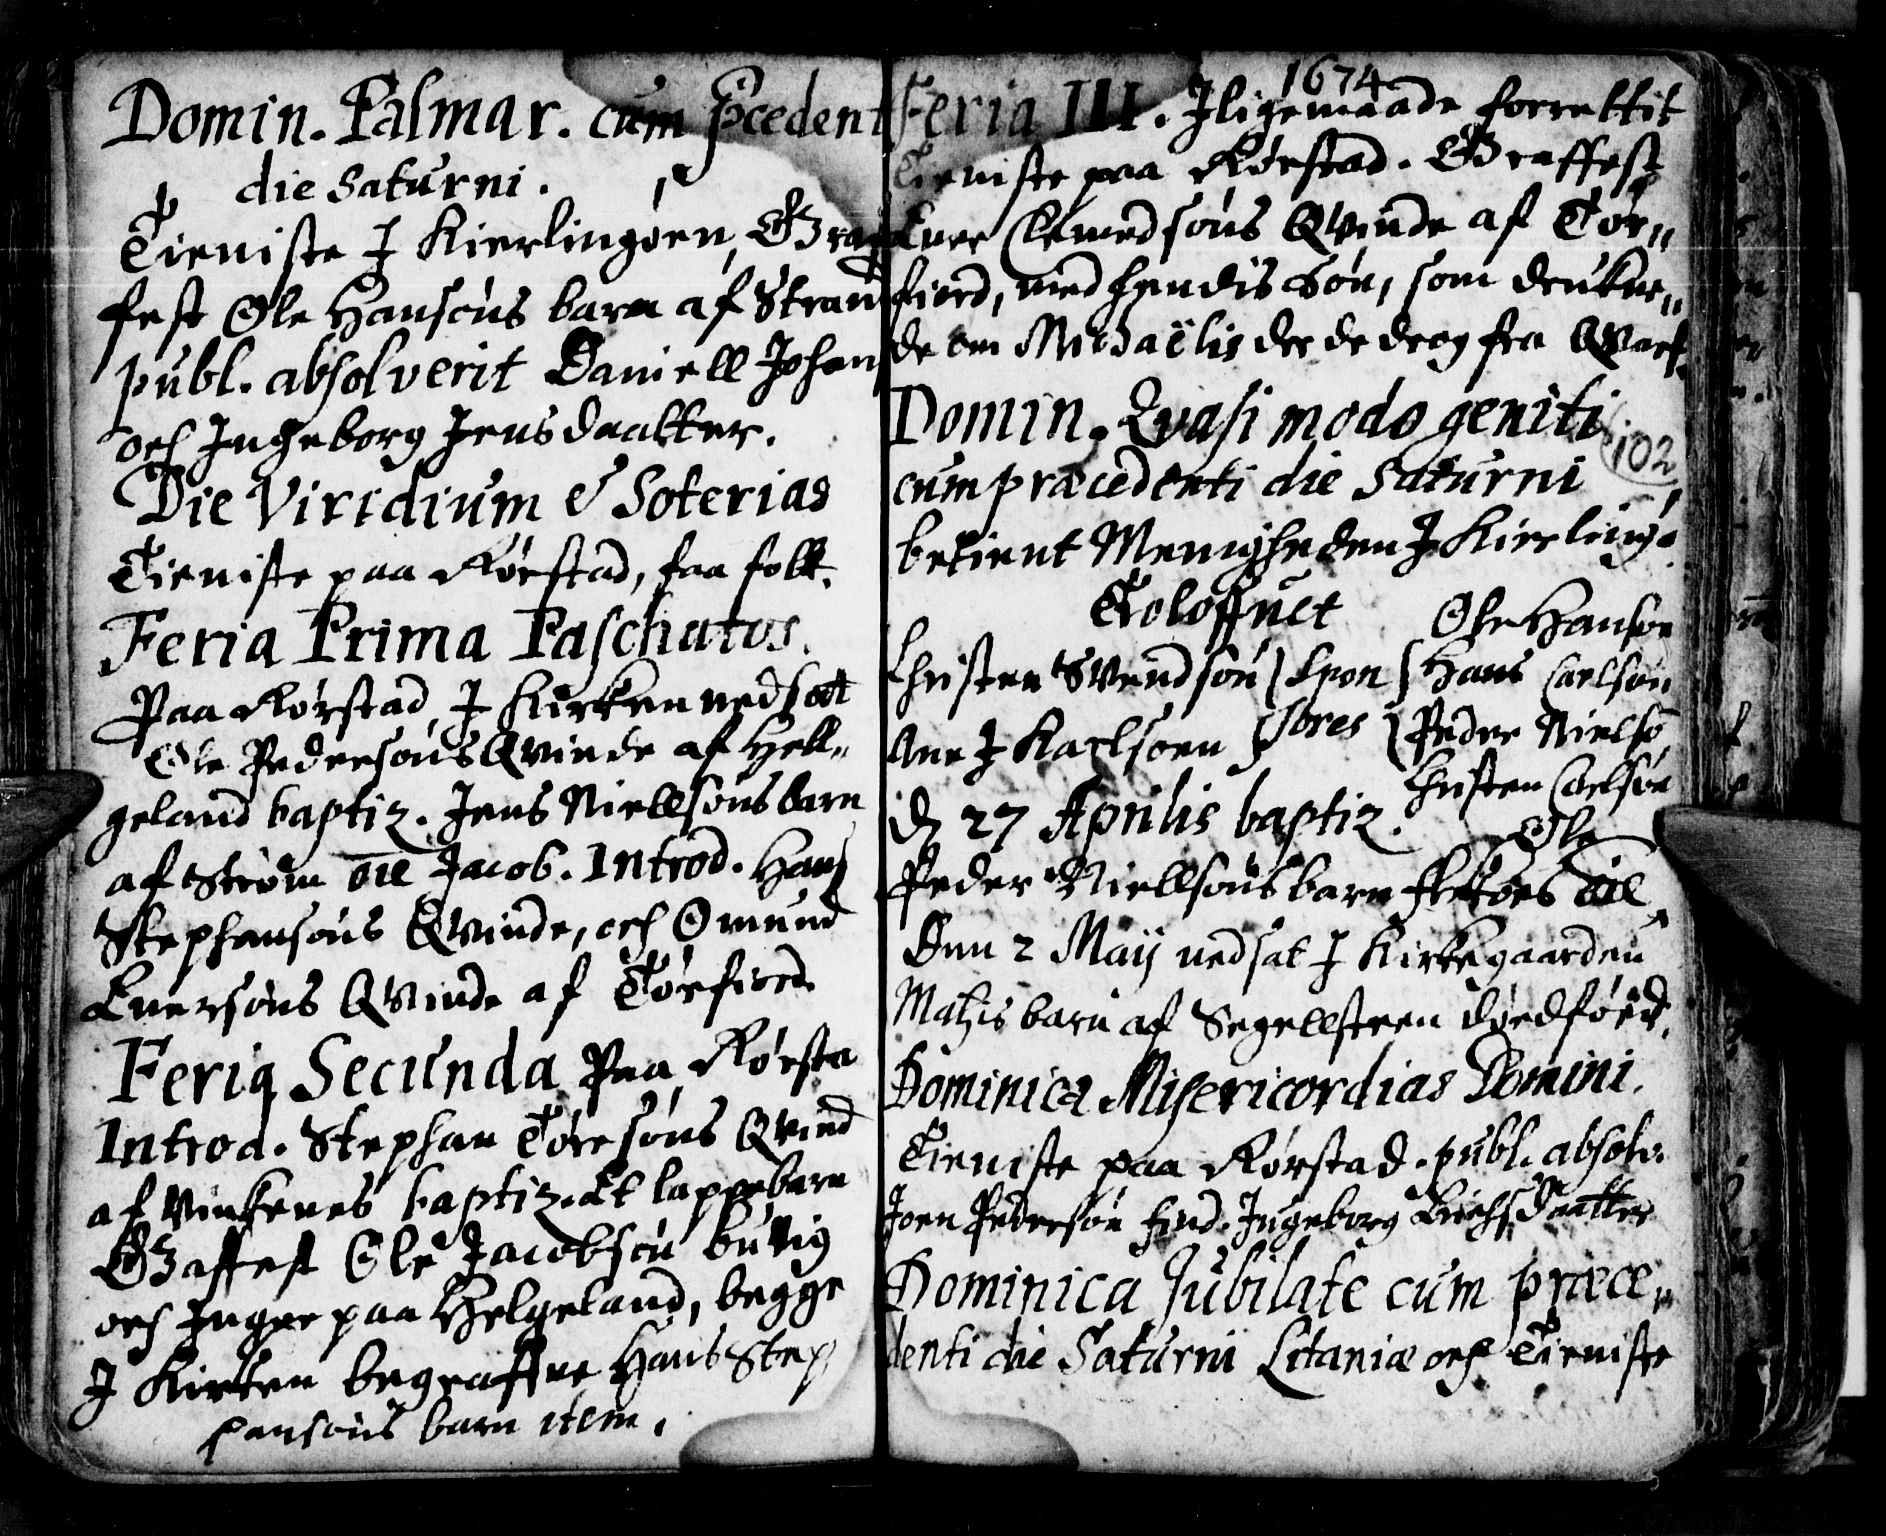 Domin. Palmar. cum p̄cedent
die Saturni.
Tieniste J Kierlingøen, Graf
fest Ole Hansøns barn af Strand
publ. absolverit Daniell Johans
och Ingeborg Jensdaatter.
Die Viridium & Soterias
Tieniste paa Rørstad, faa folk.
Feria Prima Paschatos.
Paa Rørstad, J Kirken nedsat
Ole Pedersøns Qvinde af Hell„
geland baptiz. Jens Niellsøns barn
af Strøm Jacob. Introd. Hans
Stephansøns Qvinde, och Omund
Enersøns Qvinde af Tørfiord.
Feria Secunda Paa Rørsta
Introd. Stephan Toresøns Qvind
af Vinkenes baptiz. Et lappebarn
Graffest Ole Jacobsøn
och Inger paa Helgeland, begge
J Kirken begraffne Hans Step
hansøns barn item.
1674
Feria III. Jligemaade forrettit
Tieniste paa Rørstad. Graffest
Ener Clemedsøns Qvinde af Tør„
fiord, med hendis Søn, som drukne„
de om Michaëlis der de drog fra Qvarf.
Domin. Qvasi modo geniti
102
cum præcedenti die Saturni
betient Menigheden J Kierling.
Troloffuet Ole Hansøn
Christen Svendsøn Spon Hans Carlsøn
Ane J Karlsøen sores Peder Nielsø
Christen Carlsøn
d 27 Aprilis baptiz.
Ole
Peder Niellsøns barn
Den 2 Maij nedsat J Kirkegaarden
Mathis barn af Segellsteen dødføed.
Dominica Misericordias Domini.
Tieniste paa Rørstad. publ. absolv.
Joen Pedersøn find. Ingeborg Erichs Daatter
Dominica Jubilate cum præce„
denti die Saturni Litaniæ och Tieniste